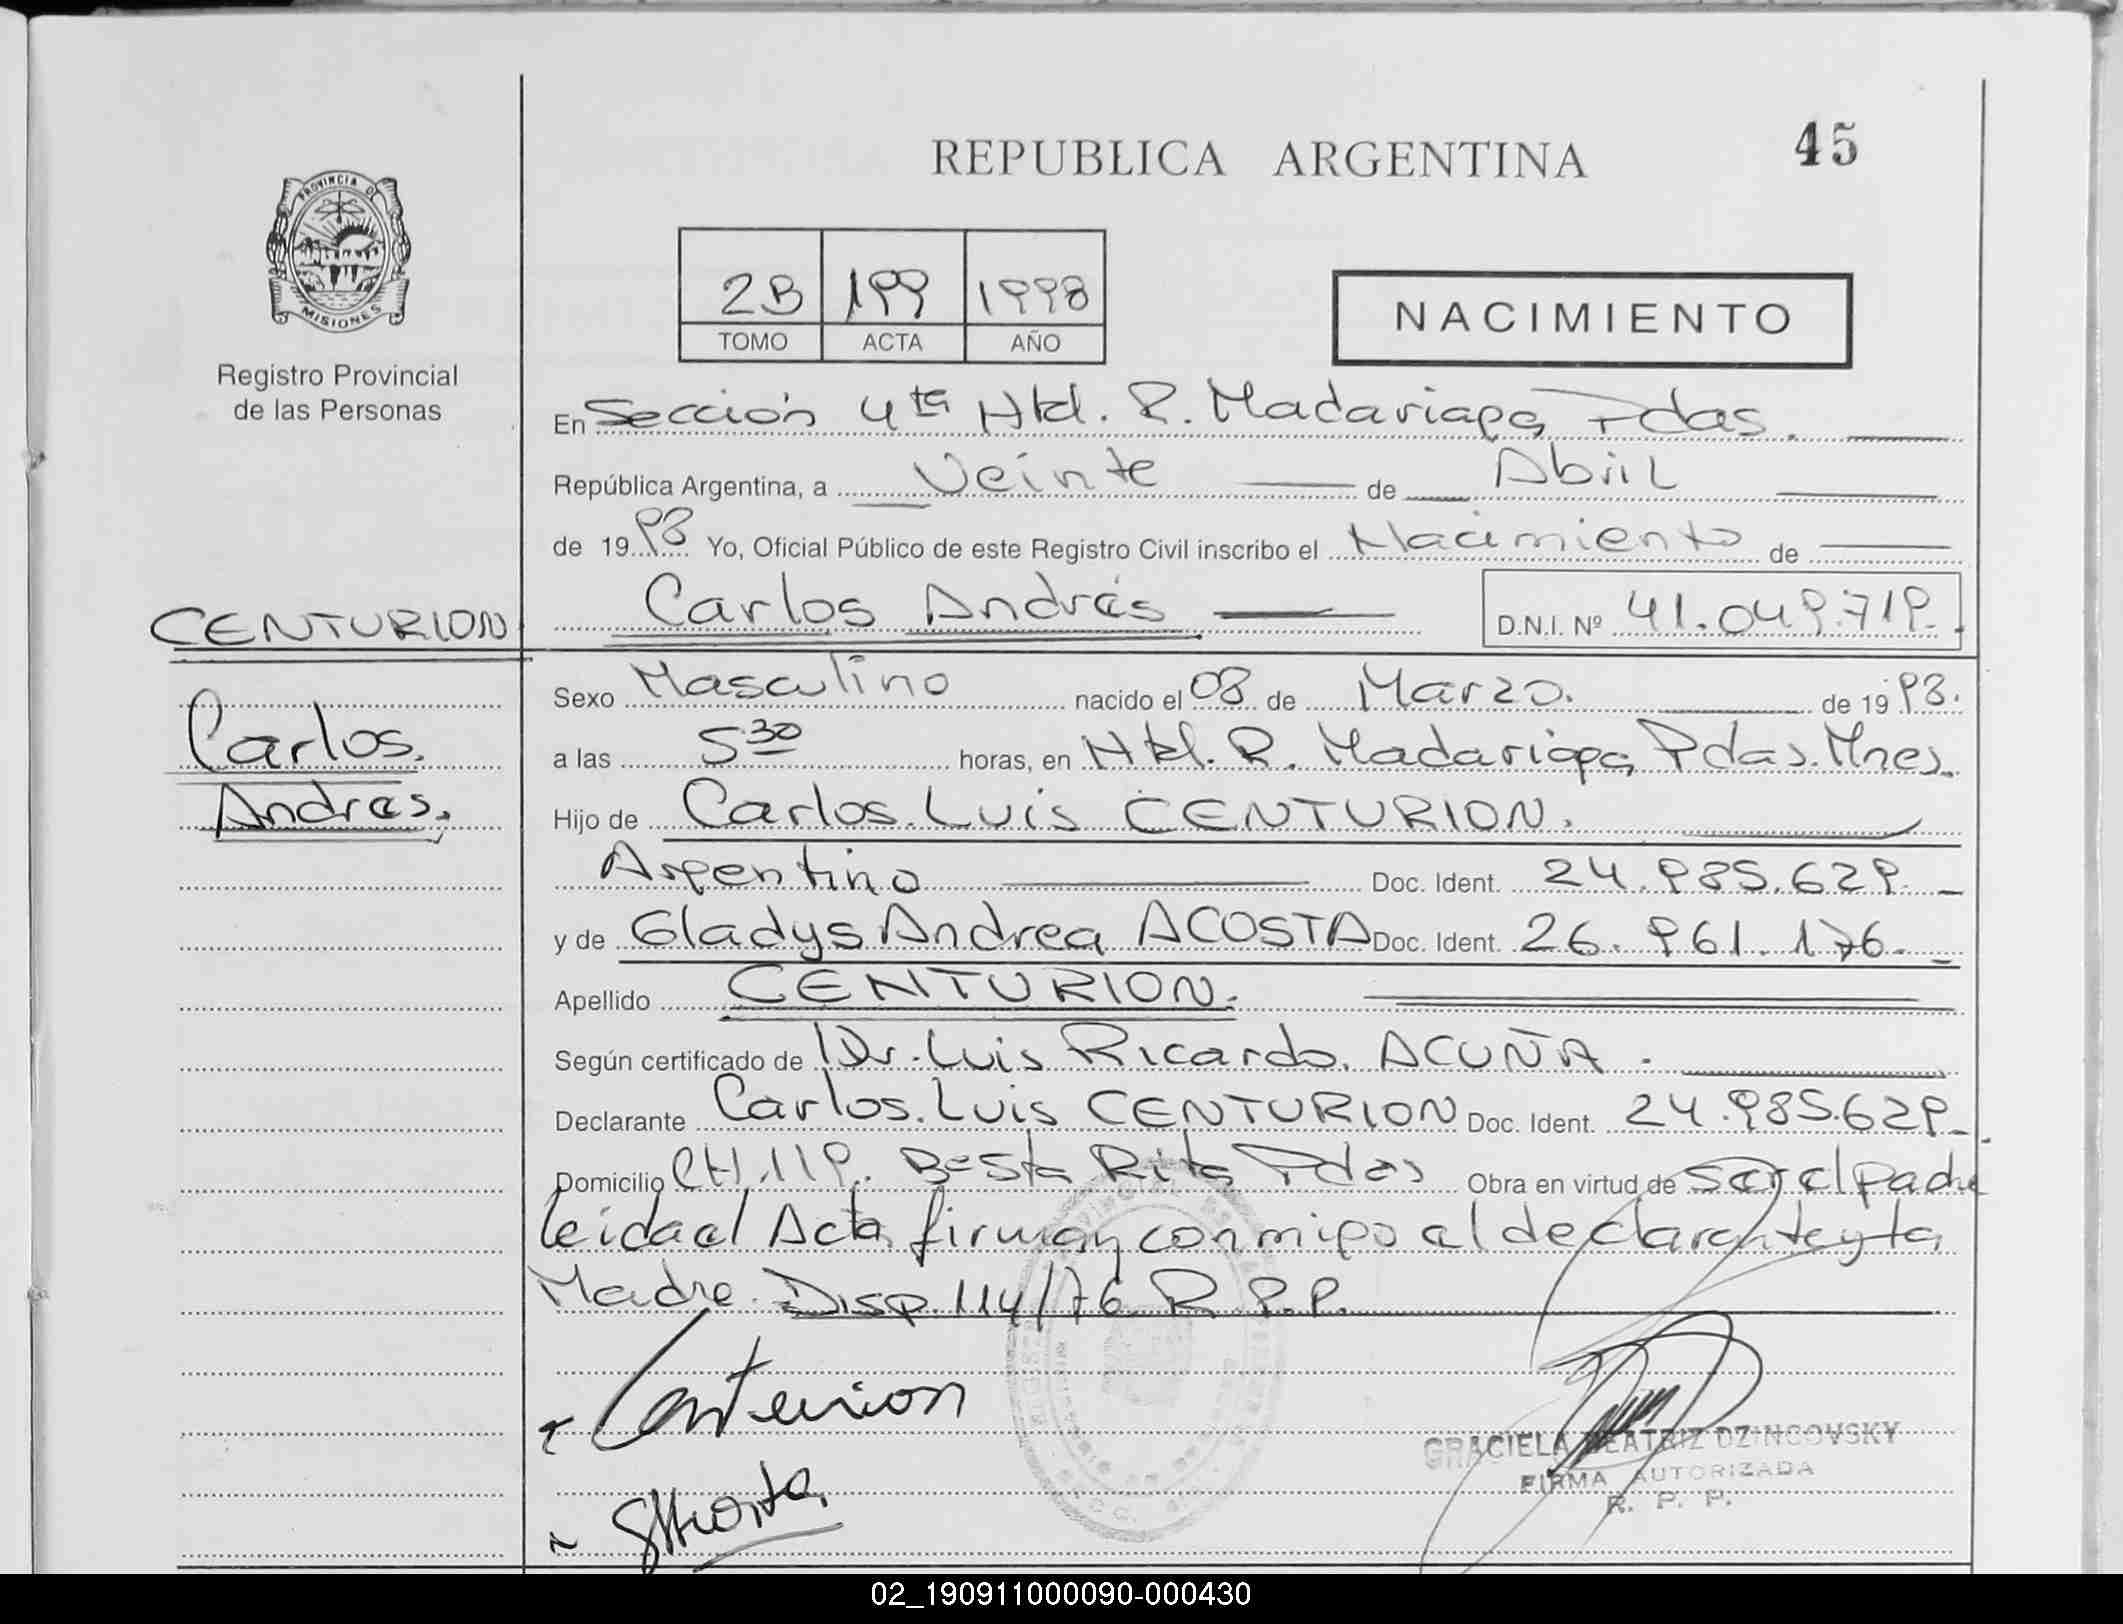 REPUBLICA ARGENTINA
45
PROVINCIA DE
MISIONES
Registro Provincial
de las Personas
2B 199 1998
TOMO ACTA AÑO
NACIMIENTO
En Sección 4ta Htal. R. Madariaga Pdas.
República Argentina, a Veinte de Abril
de 1998 Yo, Oficial Público de este Registro Civil inscribo el Nacimiento de
Carlos Andrés D.N.I. Nº 41.049.719.
CENTURION
Carlos.
Andrés.
Sexo Masculino nacido el 08 de Marzo. de 1998.
a las 5 30 horas, en Htal. R. Madariaga Pdas. Mnes.
Hijo de Carlos Luis CENTURION.
Argentino Doc. Ident. 24.985.629.
y de Gladys Andrea ACOSTA Doc. Ident. 26.961.176.
Apellido CENTURION.
Según certificado de Dr. Luis Ricardo ACUÑA.
Declarante Carlos Luis CENTURION Doc. Ident. 24.985.629.
Domicilio CH.119. Bº Sta Rita Pdas Obra en virtud de ser el padre
leida el Acta firman conmigo el declarante y la
Madre. Disp. 114/76 R.P.P.
Centurion
GRACIELA BEATRIZ DZINCOVSKY
FIRMA AUTORIZADA
R. P. P.
02_190911000090-000430